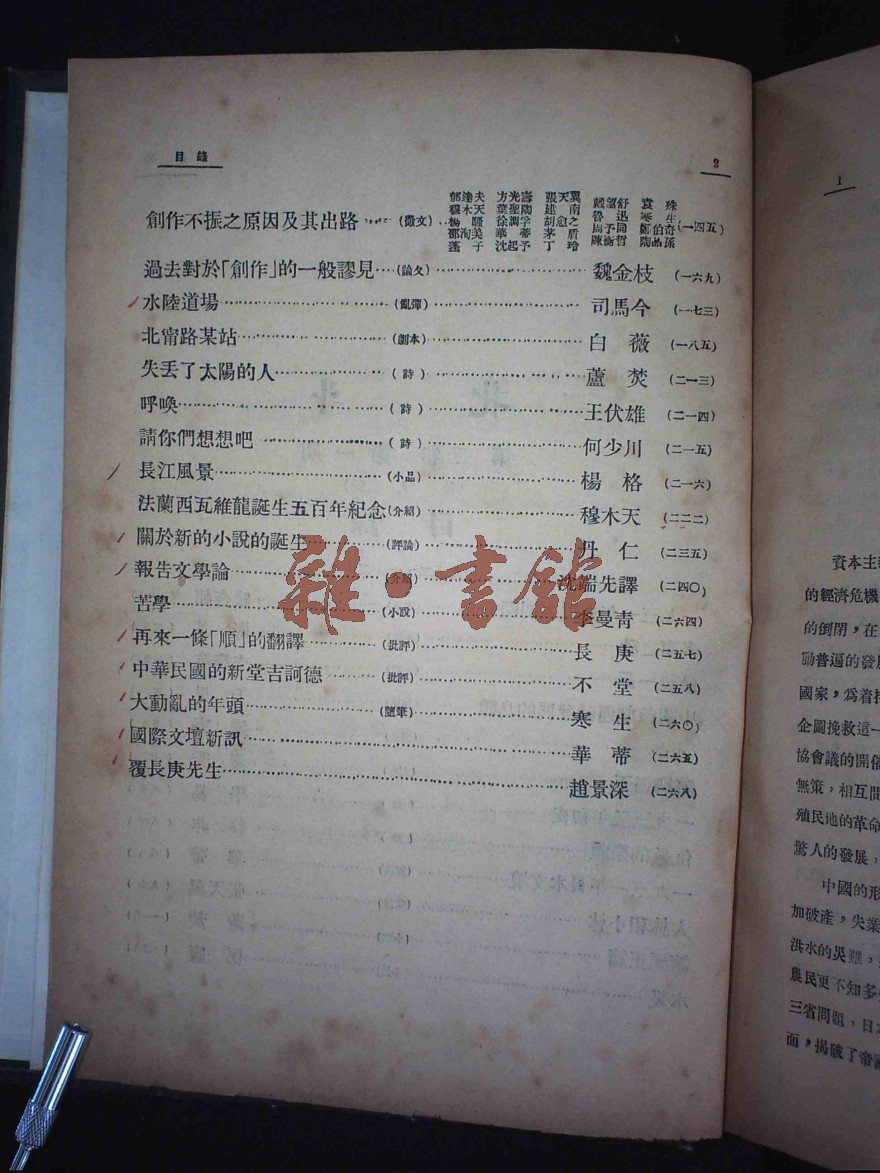 目錄
2
郁達夫 方光燾 張天翼 戴望舒 袁殊
穆木天 葉聖陶 建南 魯迅 寒生
楊騷 徐調孚 胡愈之 周予同 鄭伯奇
邵洵美 華蒂 茅盾 陳衡哲 陶晶孫
蓬子 沈起予 丁玲
創作不振之原因及其出路……(徵文)…(一四五)
過去對於「創作」的一般謬見…(論文)……魏金枝(一六九)
水陸道場……(亂彈)……司馬今(一七三)
北甯路某站……(劇本)……白薇(一八五)
失丟了太陽的人……(詩)……蘆焚(二一三)
呼喚……(詩)……王伏雄(二一四)
請你們想想吧……(詩)……何少川(二一五)
長江風景……(小品)……楊格(二一六)
法蘭西瓦維龍誕生五百年紀念(介紹)……穆木天(二二二)
關於新的小說的誕生……(評論)……丹仁(二三五)
報告文學論……(介紹)……沈端先譯(二四〇)
苦學……(小說)……李曼青(二六四)
再來一條「順」的翻譯……(批評)……長庚(二五七)
中華民國的新堂吉訶德……(批評)……不堂(二五八)
大動亂的年頭……(隨筆)……寒生(二六〇)
國際文壇新訊……華蒂(二六五)
覆長庚先生……趙景深(二六八)
雜·書館
1
資本主
的經濟危機
的倒閉，在
動普遍的發
國家，爲着
企圖挽救這一
協會議的開催
無策，相互間
殖民地的革命
驚人的發展，
中國的形
加破產，失業
洪水的災難，
農民更不知多
三省問題，日
面，揭破了帝